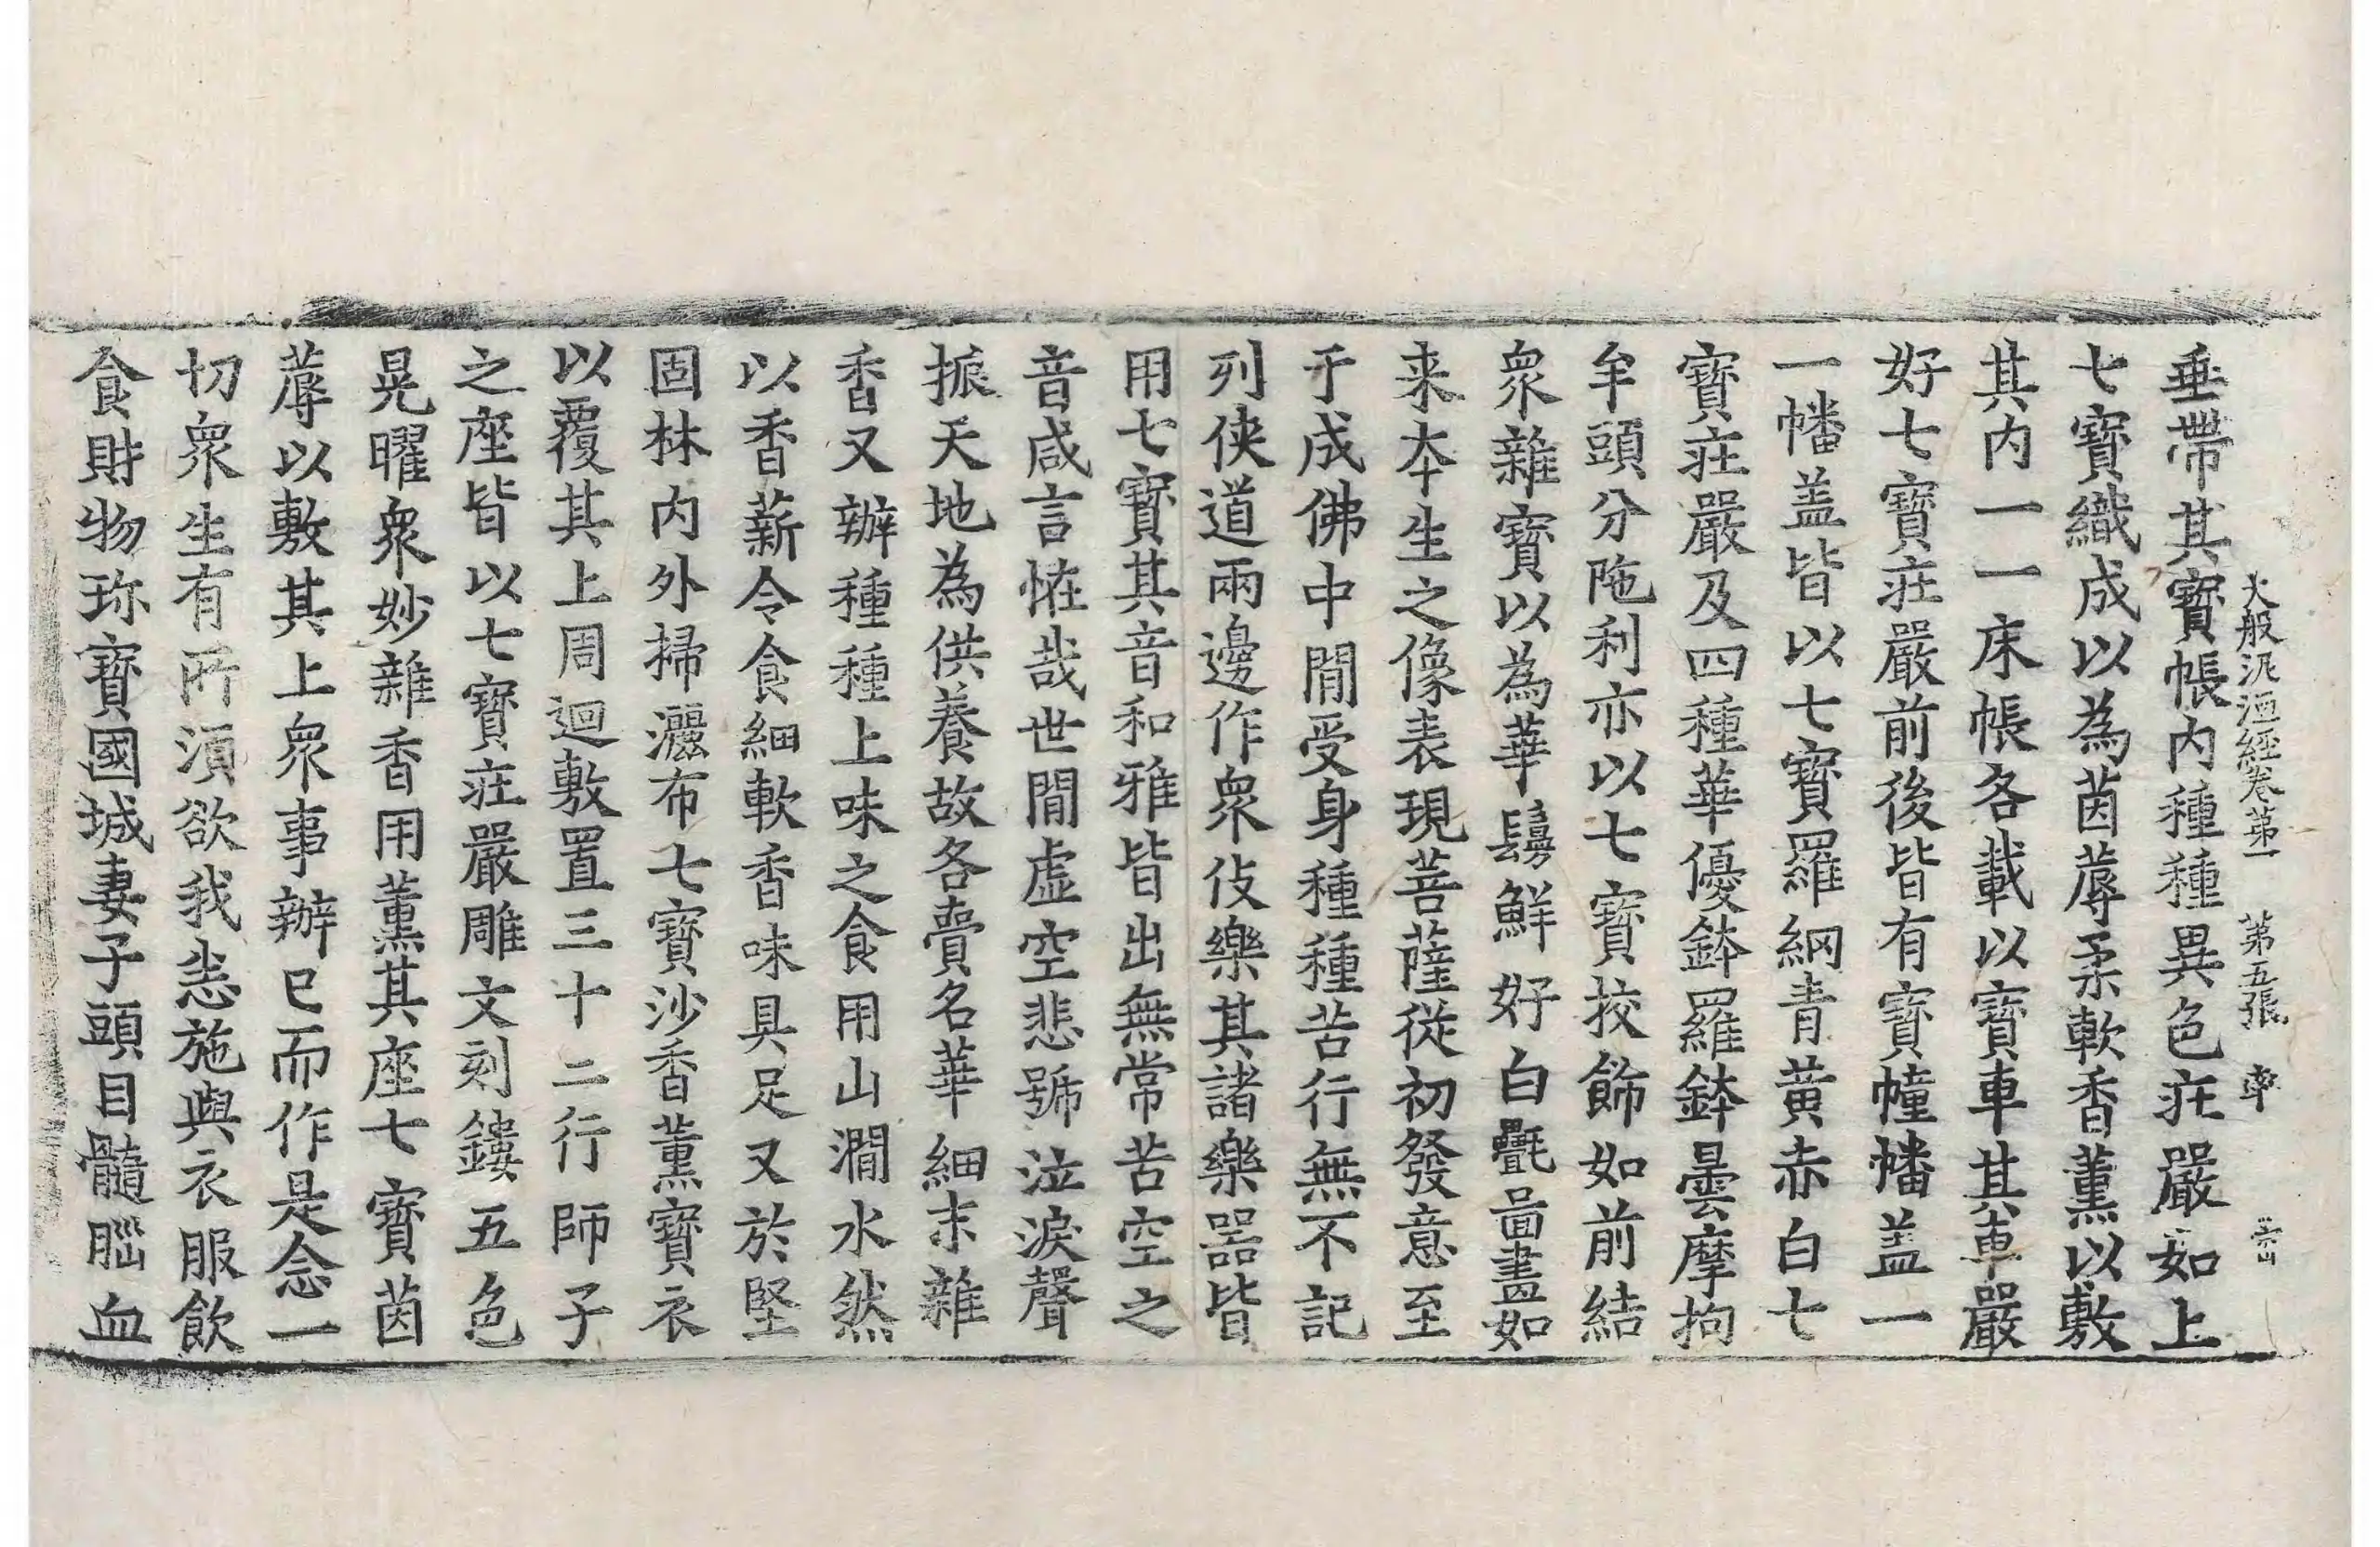 大般泥洹經卷第一　第五張　率
垂帶其寶帳內種種異色莊嚴如上
七寶織成以為茵蓐柔軟香薰以敷
其內一一床帳各載以寶車其車嚴
好七寶莊嚴前後皆有寶幢幡盖一
一幡盖皆以七寶羅網青黃赤白七
寶莊嚴及四種華優鉢羅鉢曇摩拘
牟頭分陁利亦以七寶挍飾如前結
衆雜寶以為華鬘鮮好白㲲啚畫如
来夲生之像表現菩薩從初發意至
于成佛中閒受身種種苦行無不記
列俠道兩邊作衆伎樂其諸樂器皆
用七寶其音和雅皆出無常苦空之
音咸言恠哉世閒虛空悲號泣淚聲
振天地為供養故各賷名華細末雜
香又辦種種上味之食用山澗水然
以香薪令食細軟香味具足又於堅
固林內外掃灑布七寶沙香薰寶衣
以覆其上周迴敷置三十二行師子
之座皆以七寶莊嚴雕文刻鏤五色
晃曜衆妙雜香用薰其座七寶茵
蓐以敷其上衆事辦已而作是念一
切衆生有所湏欲我悉施與衣服飲
食財物珎寶國城妻子頭目髓𦛁血